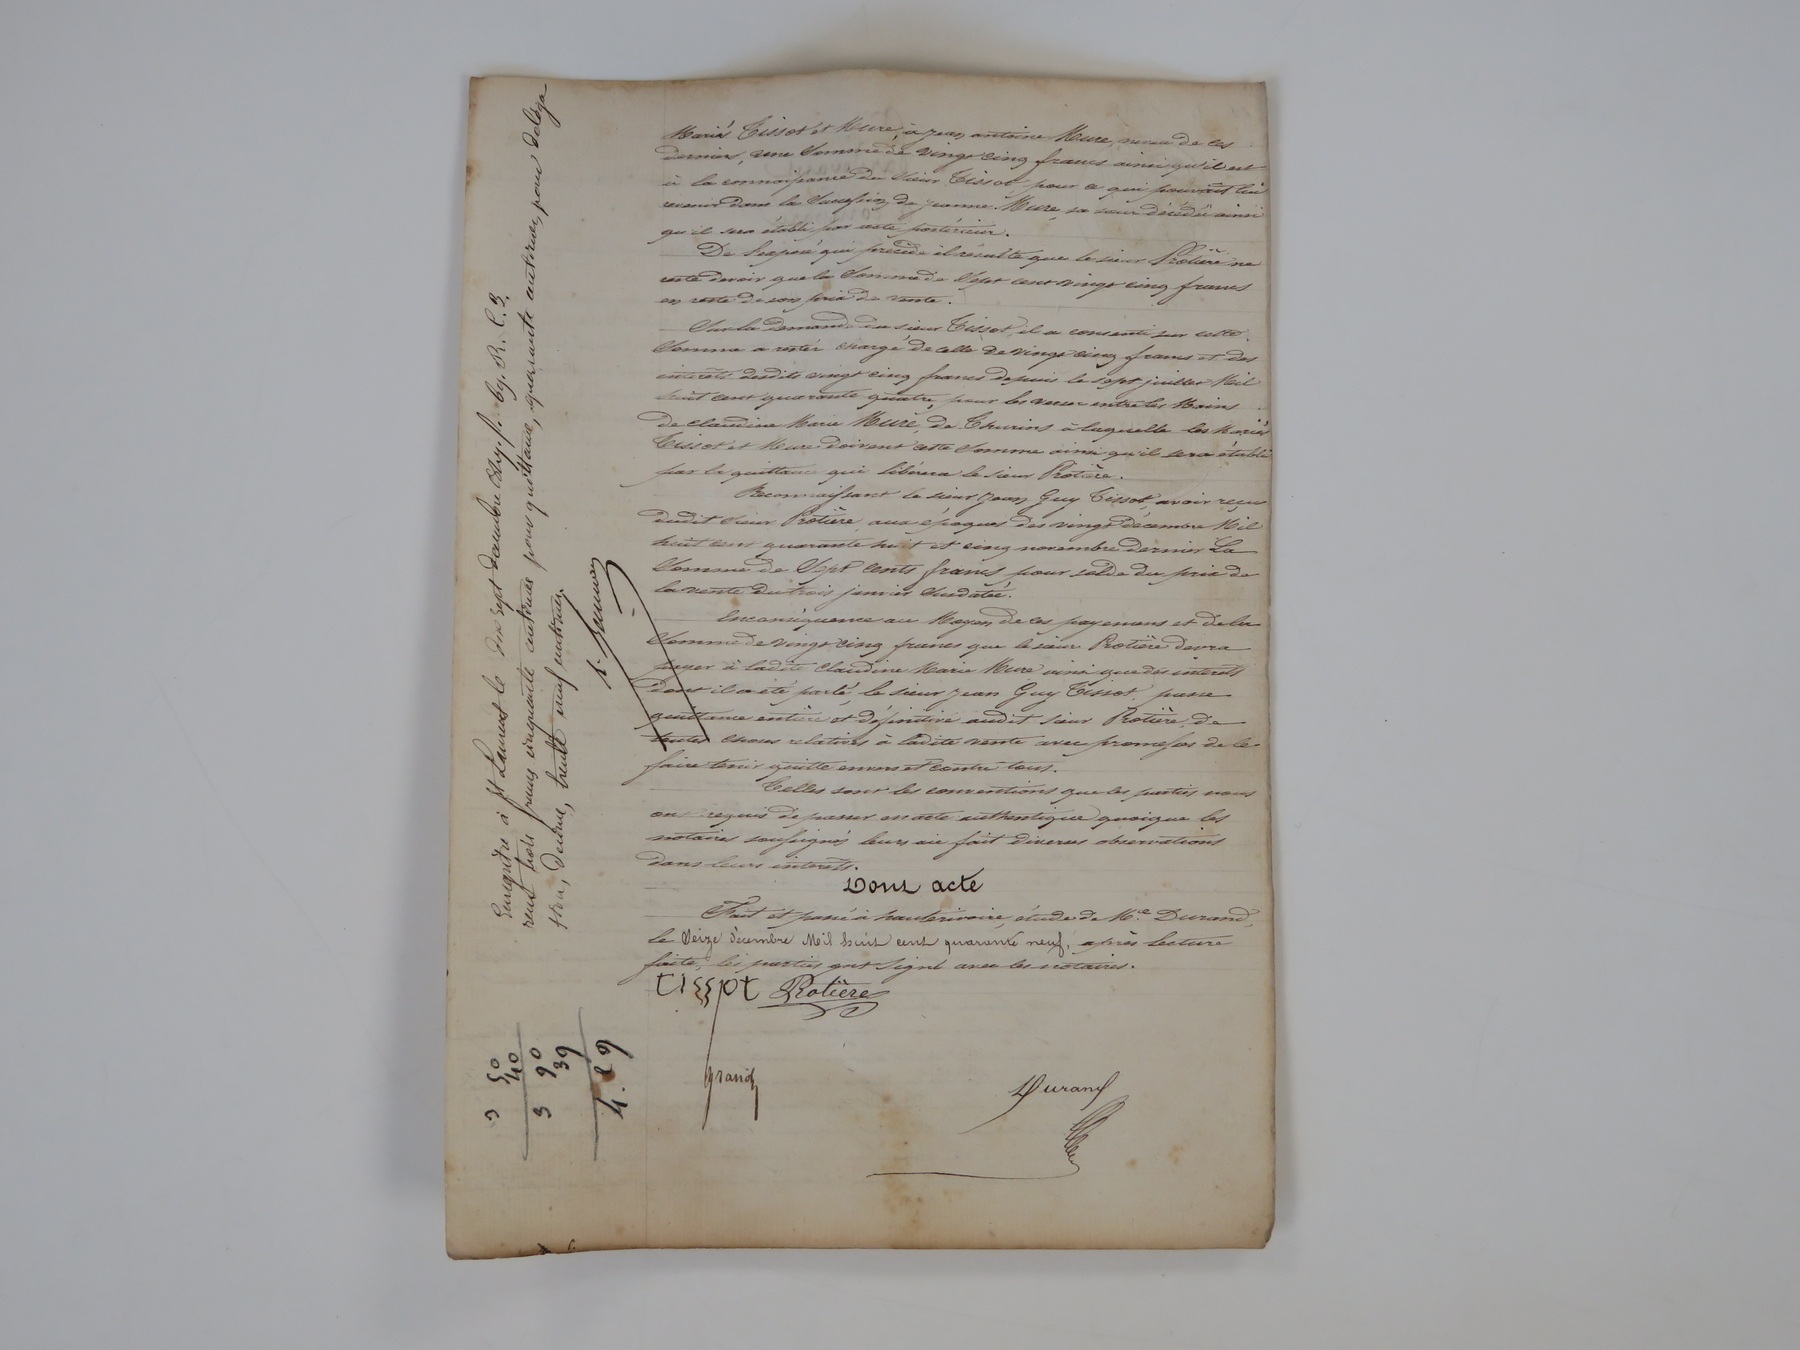 Mariés Tissot et Mure, à Jean antoine Mure, neveu de ces
derniers, une Somme de vingt cinq francs ainsi qu'il est
à la connoissance du sieur Tissot, pour ce qui pouvait lui
revenir dans la Succession de jeanne Mure, sa sœur décédée ainsi
qu'il sera établi par acte postérieur.
De l'exposé qui précède il résulte que le sieur Rotière ne
reste devoir que la Somme de Sept cent vingt cinq francs
en reste de son prix de vente.
Sur la demande du sieur Tissot, il a consenti sur cette
Somme a rester chargé de celle de vingt cinq francs et des
intérêts desdits vingt cinq francs depuis le sept juillet Mil
huit cent quarante quatre, pour les verser entre les Mains
de Claudine Marie Mure, de Thurins à laquelle les Mariés
Tissot et Mure doivent cette Somme ainsi qu'il sera établi
par la quittance qui libérera le sieur Rotière.
Reconnaissant le sieur Jean Guy Tissot, avoir reçu
dudit sieur Rotière aux époques des vingt décembre Mil
huit cent quarante huit et cinq novembre dernier La
Somme de Sept cents francs pour solde du prix de
la vente du trois janvier Susdatée.
En conséquence au Moyen de ces payemens et de la
Somme de vingt cinq francs que le sieur Rotière devra
payer à ladite Claudine Marie Mure ainsi que des interets
dont il a été parlé, le sieur Jean Guy Tissot, passe
quittance entière et définitive audit sieur Rotière, de
toutes choses relatives à ladite vente avec promesses de le
faire tenir quitte envers et contre tous.
Telles sont les conventions que les parties nous
ont requis de passer en acte authentique quoique les
notaires soussignés leurs aie fait diverses observations
dans leurs interets.
Dont acte
Fait et passé à hauterivoire, étude de Me. Durand,
le Seize décembre Mil huit cent quarante neuf, après lecture
faite, les parties ont signé avec les notaires.
tissot Rotière
grand
Durand
Enregistré à St Laurent le dix sept décembre 1849, fo. 69, R. C. 3.
reçu trois francs cinquante centimes pour quittance, quarante centimes, pour déléga
tion, décime, trente neuf centimes.
3 50
40
3 90
39
4.29